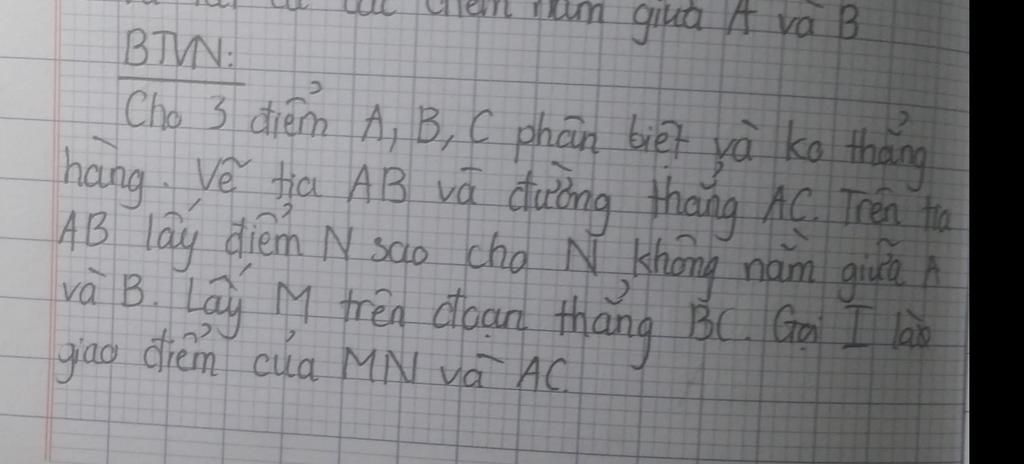 và tất cả các điểm nằm giữa A và B
BTVN:
Cho 3 điểm A, B, C phân biệt và ko thẳng
hàng. Vẽ tia AB và đường thẳng AC. Trên tia
AB lấy điểm N sao cho N không nằm giữa A
và B. Lấy M trên đoạn thẳng BC. Gọi I là
giao điểm của MN và AC